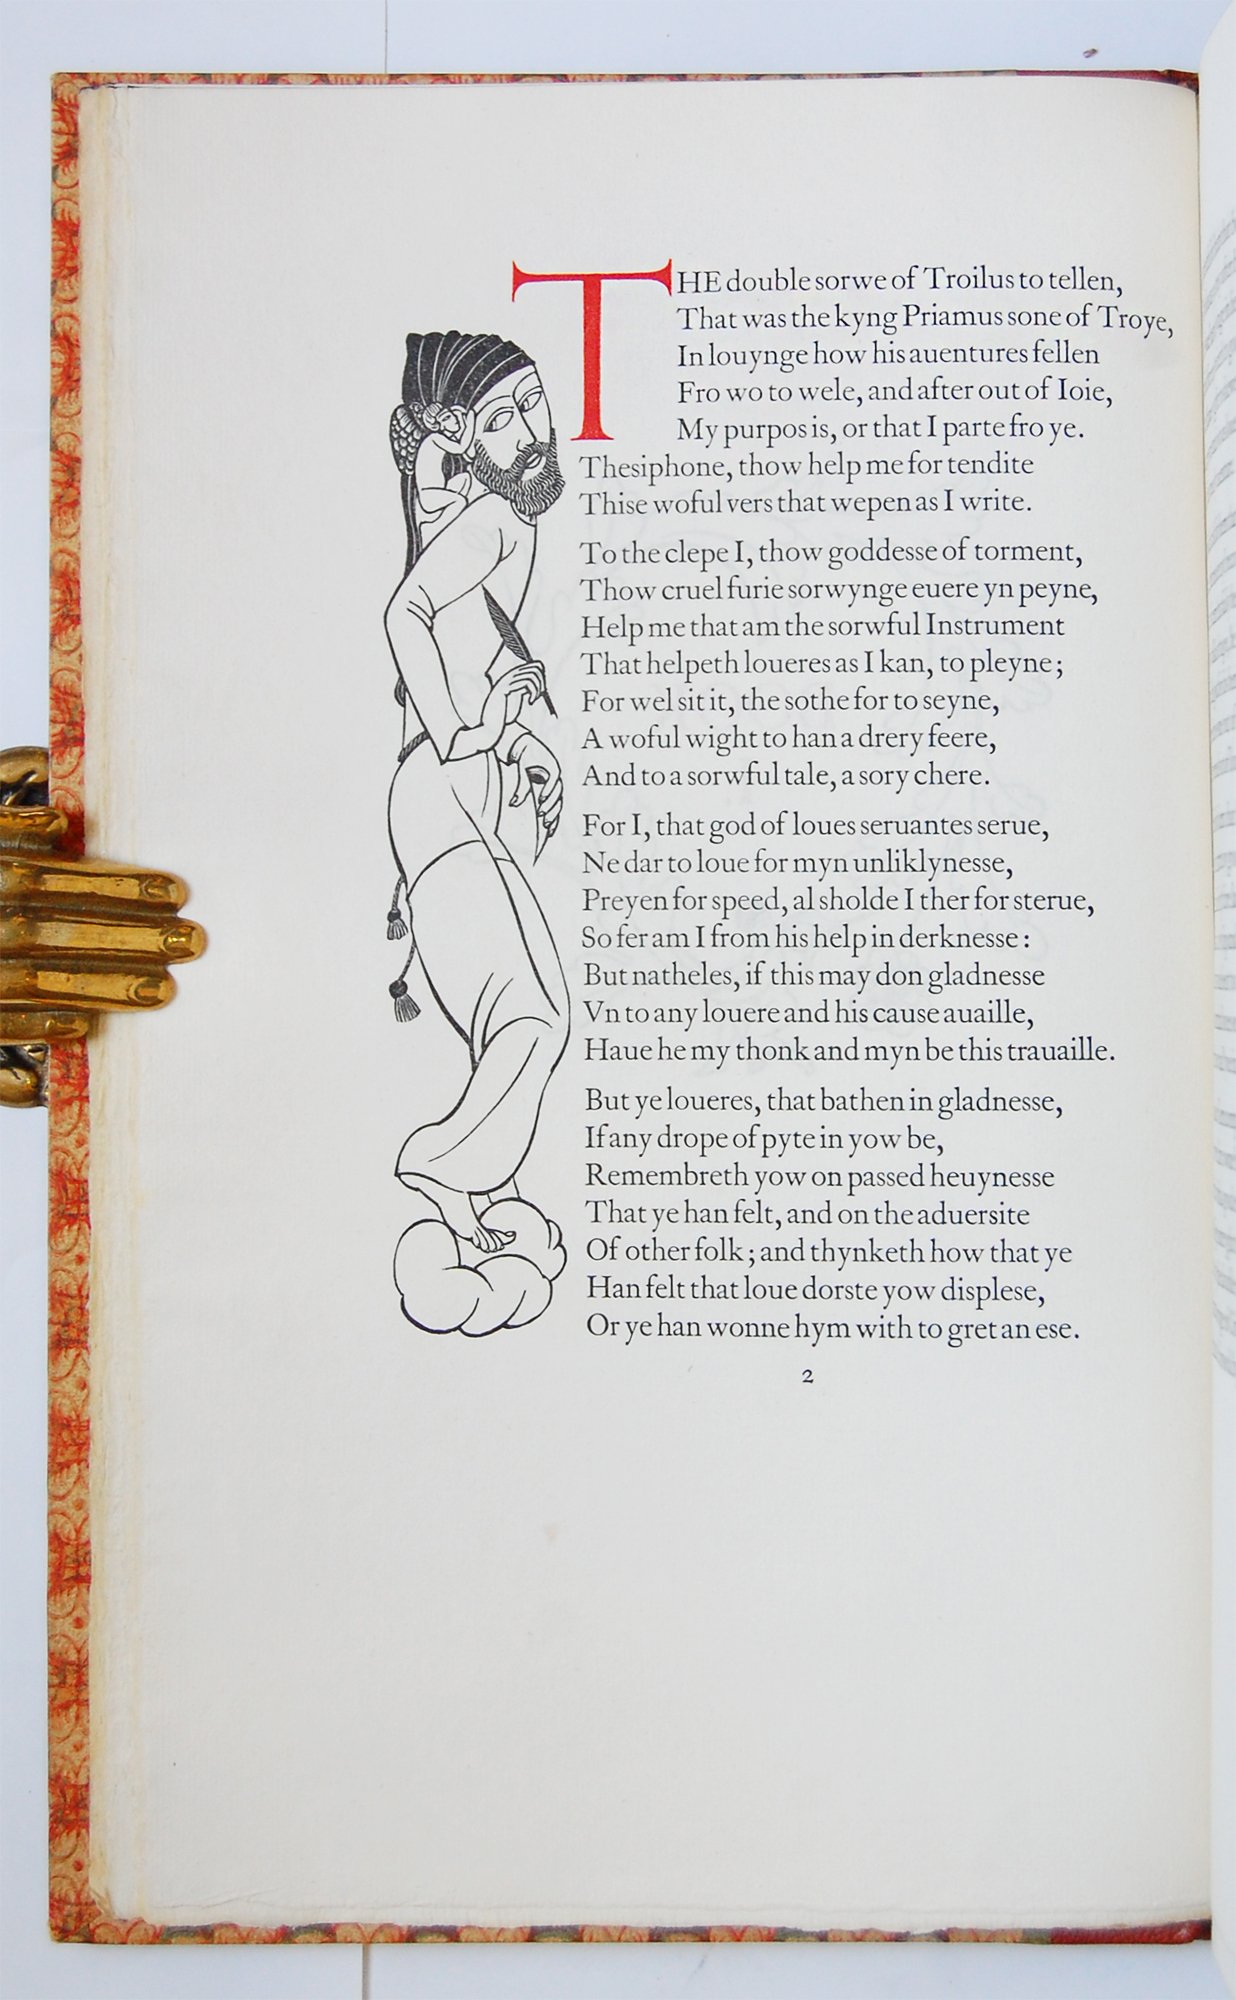 THE double sorwe of Troilus to tellen,
That was the kyng Priamus sone of Troye,
In louynge how his auentures fellen
Fro wo to wele, and after out of Ioie,
My purpos is, or that I parte fro ye.
Thesiphone, thow help me for tendite
Thise woful vers that wepen as I write.
To the clepe I, thow goddesse of torment,
Thow cruel furie sorwynge euere yn peyne,
Help me that am the sorwful Instrument
That helpeth loueres as I kan, to pleyne;
For wel sit it, the sothe for to seyne,
A woful wight to han a drery feere,
And to a sorwful tale, a sory chere.
For I, that god of loues seruantes serue,
Ne dar to loue for myn unliklynesse,
Preyen for speed, al sholde I ther for sterue,
So fer am I from his help in derknesse:
But natheles, if this may don gladnesse
Vn to any louere and his cause auaille,
Haue he my thonk and myn be this trauaille.
But ye loueres, that bathen in gladnesse,
If any drope of pyte in yow be,
Remembreth yow on passed heuynesse
That ye han felt, and on the aduersite
Of other folk; and thynketh how that ye
Han felt that loue dorste yow displese,
Or ye han wonne hym with to gret an ese.
2